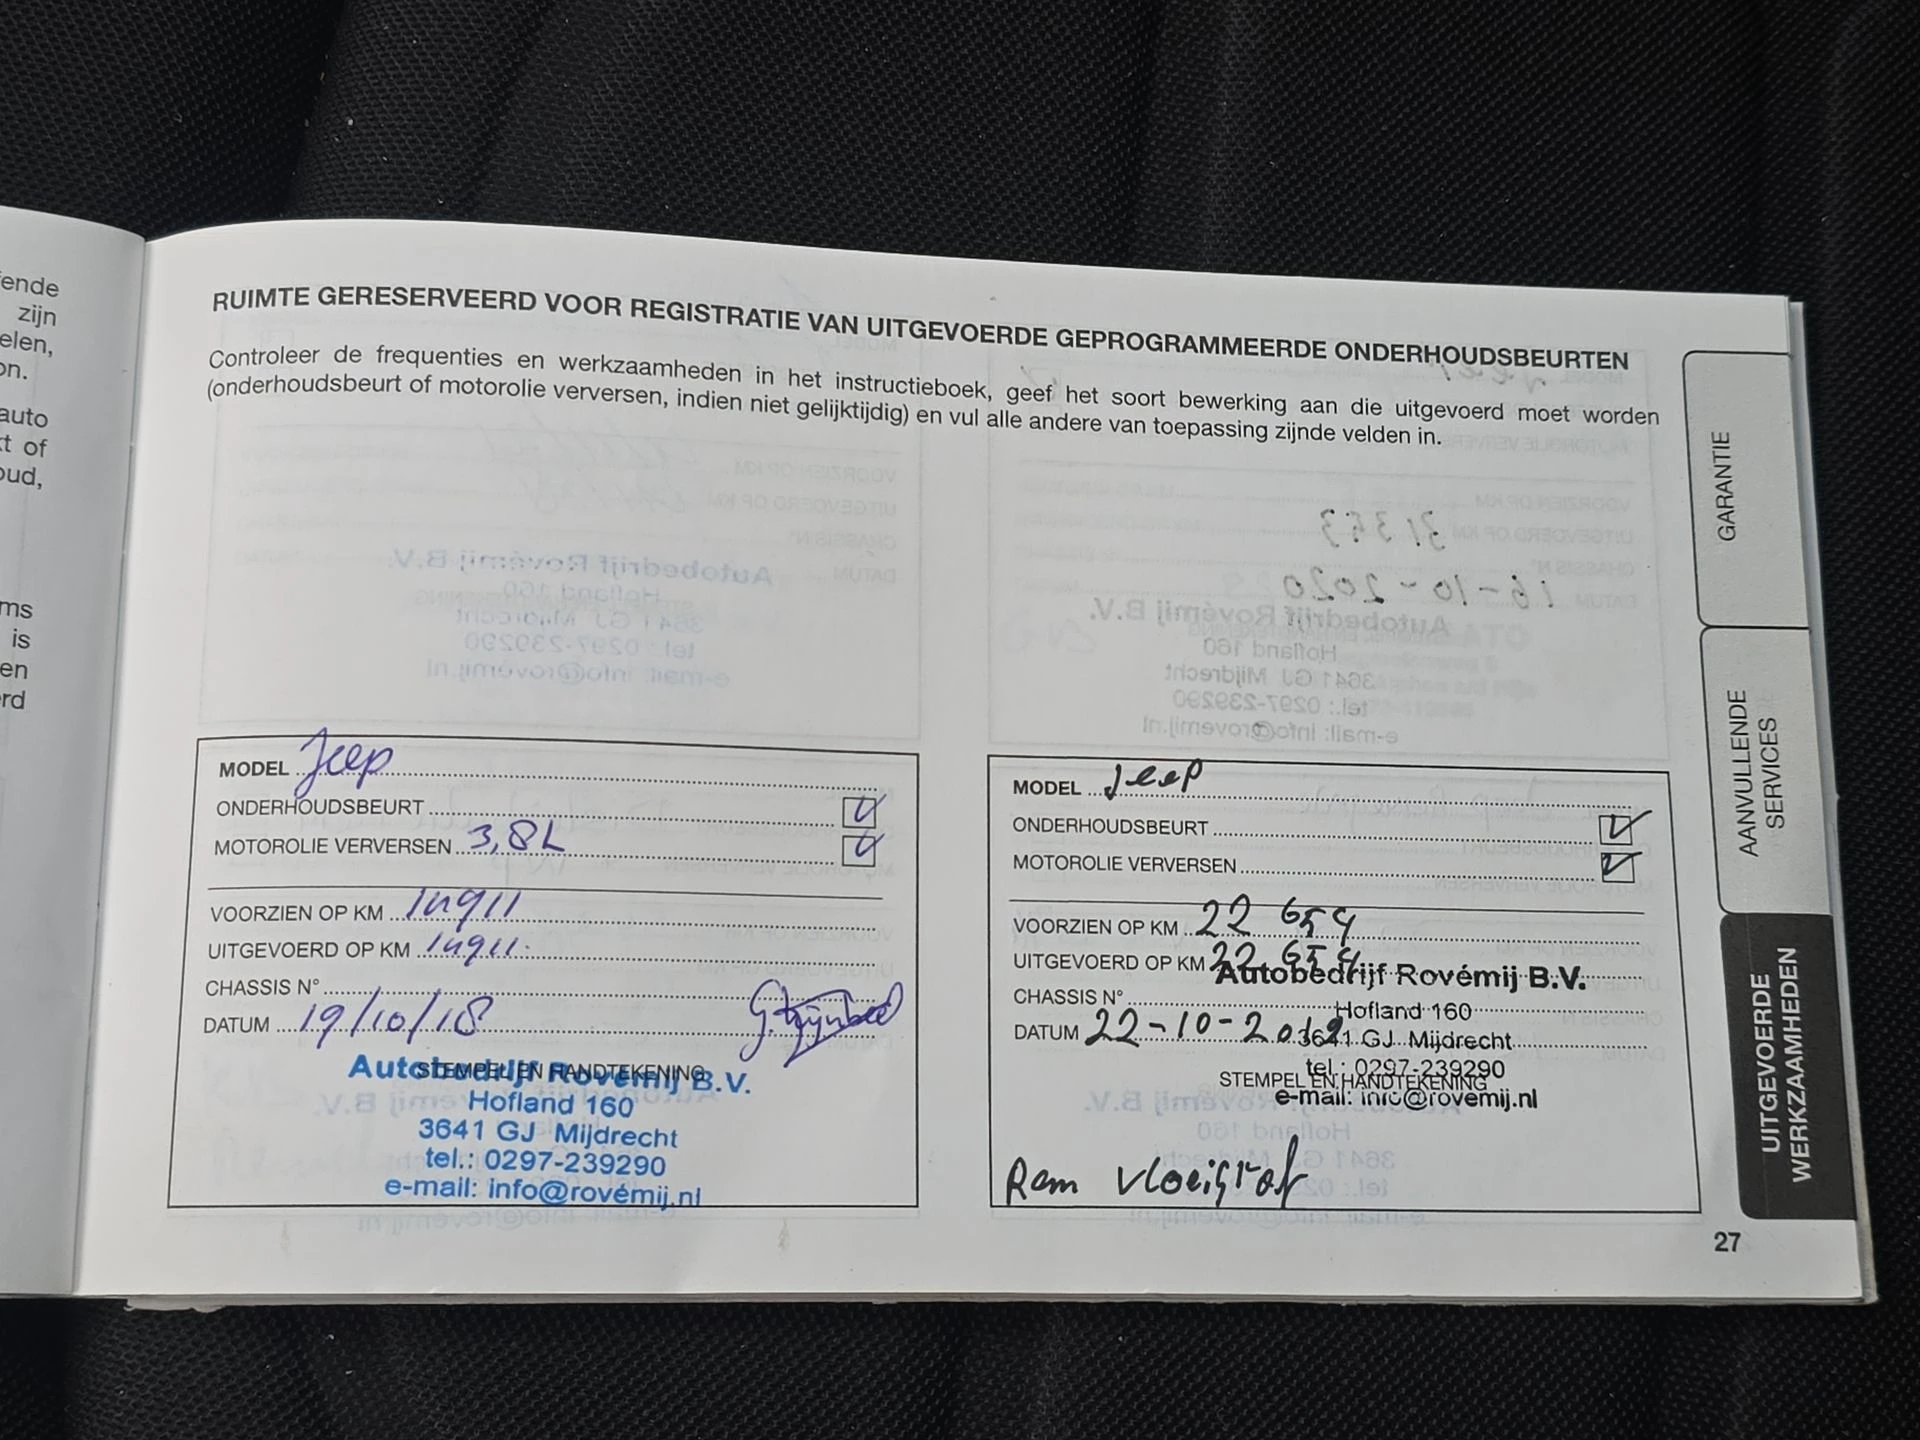 ende
zijn
elen,
on.
auto
t of
oud,
ms
is
en
rd
RUIMTE GERESERVEERD VOOR REGISTRATIE VAN UITGEVOERDE GEPROGRAMMEERDE ONDERHOUDSBEURTEN
Controleer de frequenties en werkzaamheden in het instructieboek, geef het soort bewerking aan die uitgevoerd moet worden
(onderhoudsbeurt of motorolie verversen, indien niet gelijktijdig) en vul alle andere van toepassing zijnde velden in.
MODEL Jeep
ONDERHOUDSBEURT
MOTOROLIE VERVERSEN 3,8L
VOORZIEN OP KM 14911
UITGEVOERD OP KM 14911
CHASSIS N°
DATUM 19/10/18
STEMPEL EN HANDTEKENING
Autobedrijf Rovémij B.V.
Hofland 160
3641 GJ Mijdrecht
tel.: 0297-239290
e-mail: info@rovémij.nl
MODEL Jeep
ONDERHOUDSBEURT
MOTOROLIE VERVERSEN
VOORZIEN OP KM 22 654
UITGEVOERD OP KM 22 654
CHASSIS N°
DATUM 22-10-2019
STEMPEL EN HANDTEKENING
Autobedrijf Rovémij B.V.
Hofland 160
3641 GJ Mijdrecht
tel.: 0297-239290
e-mail: info@rovemij.nl
Rem vloeistof
GARANTIE
AANVULLENDE
SERVICES
UITGEVOERDE
WERKZAAMHEDEN
27